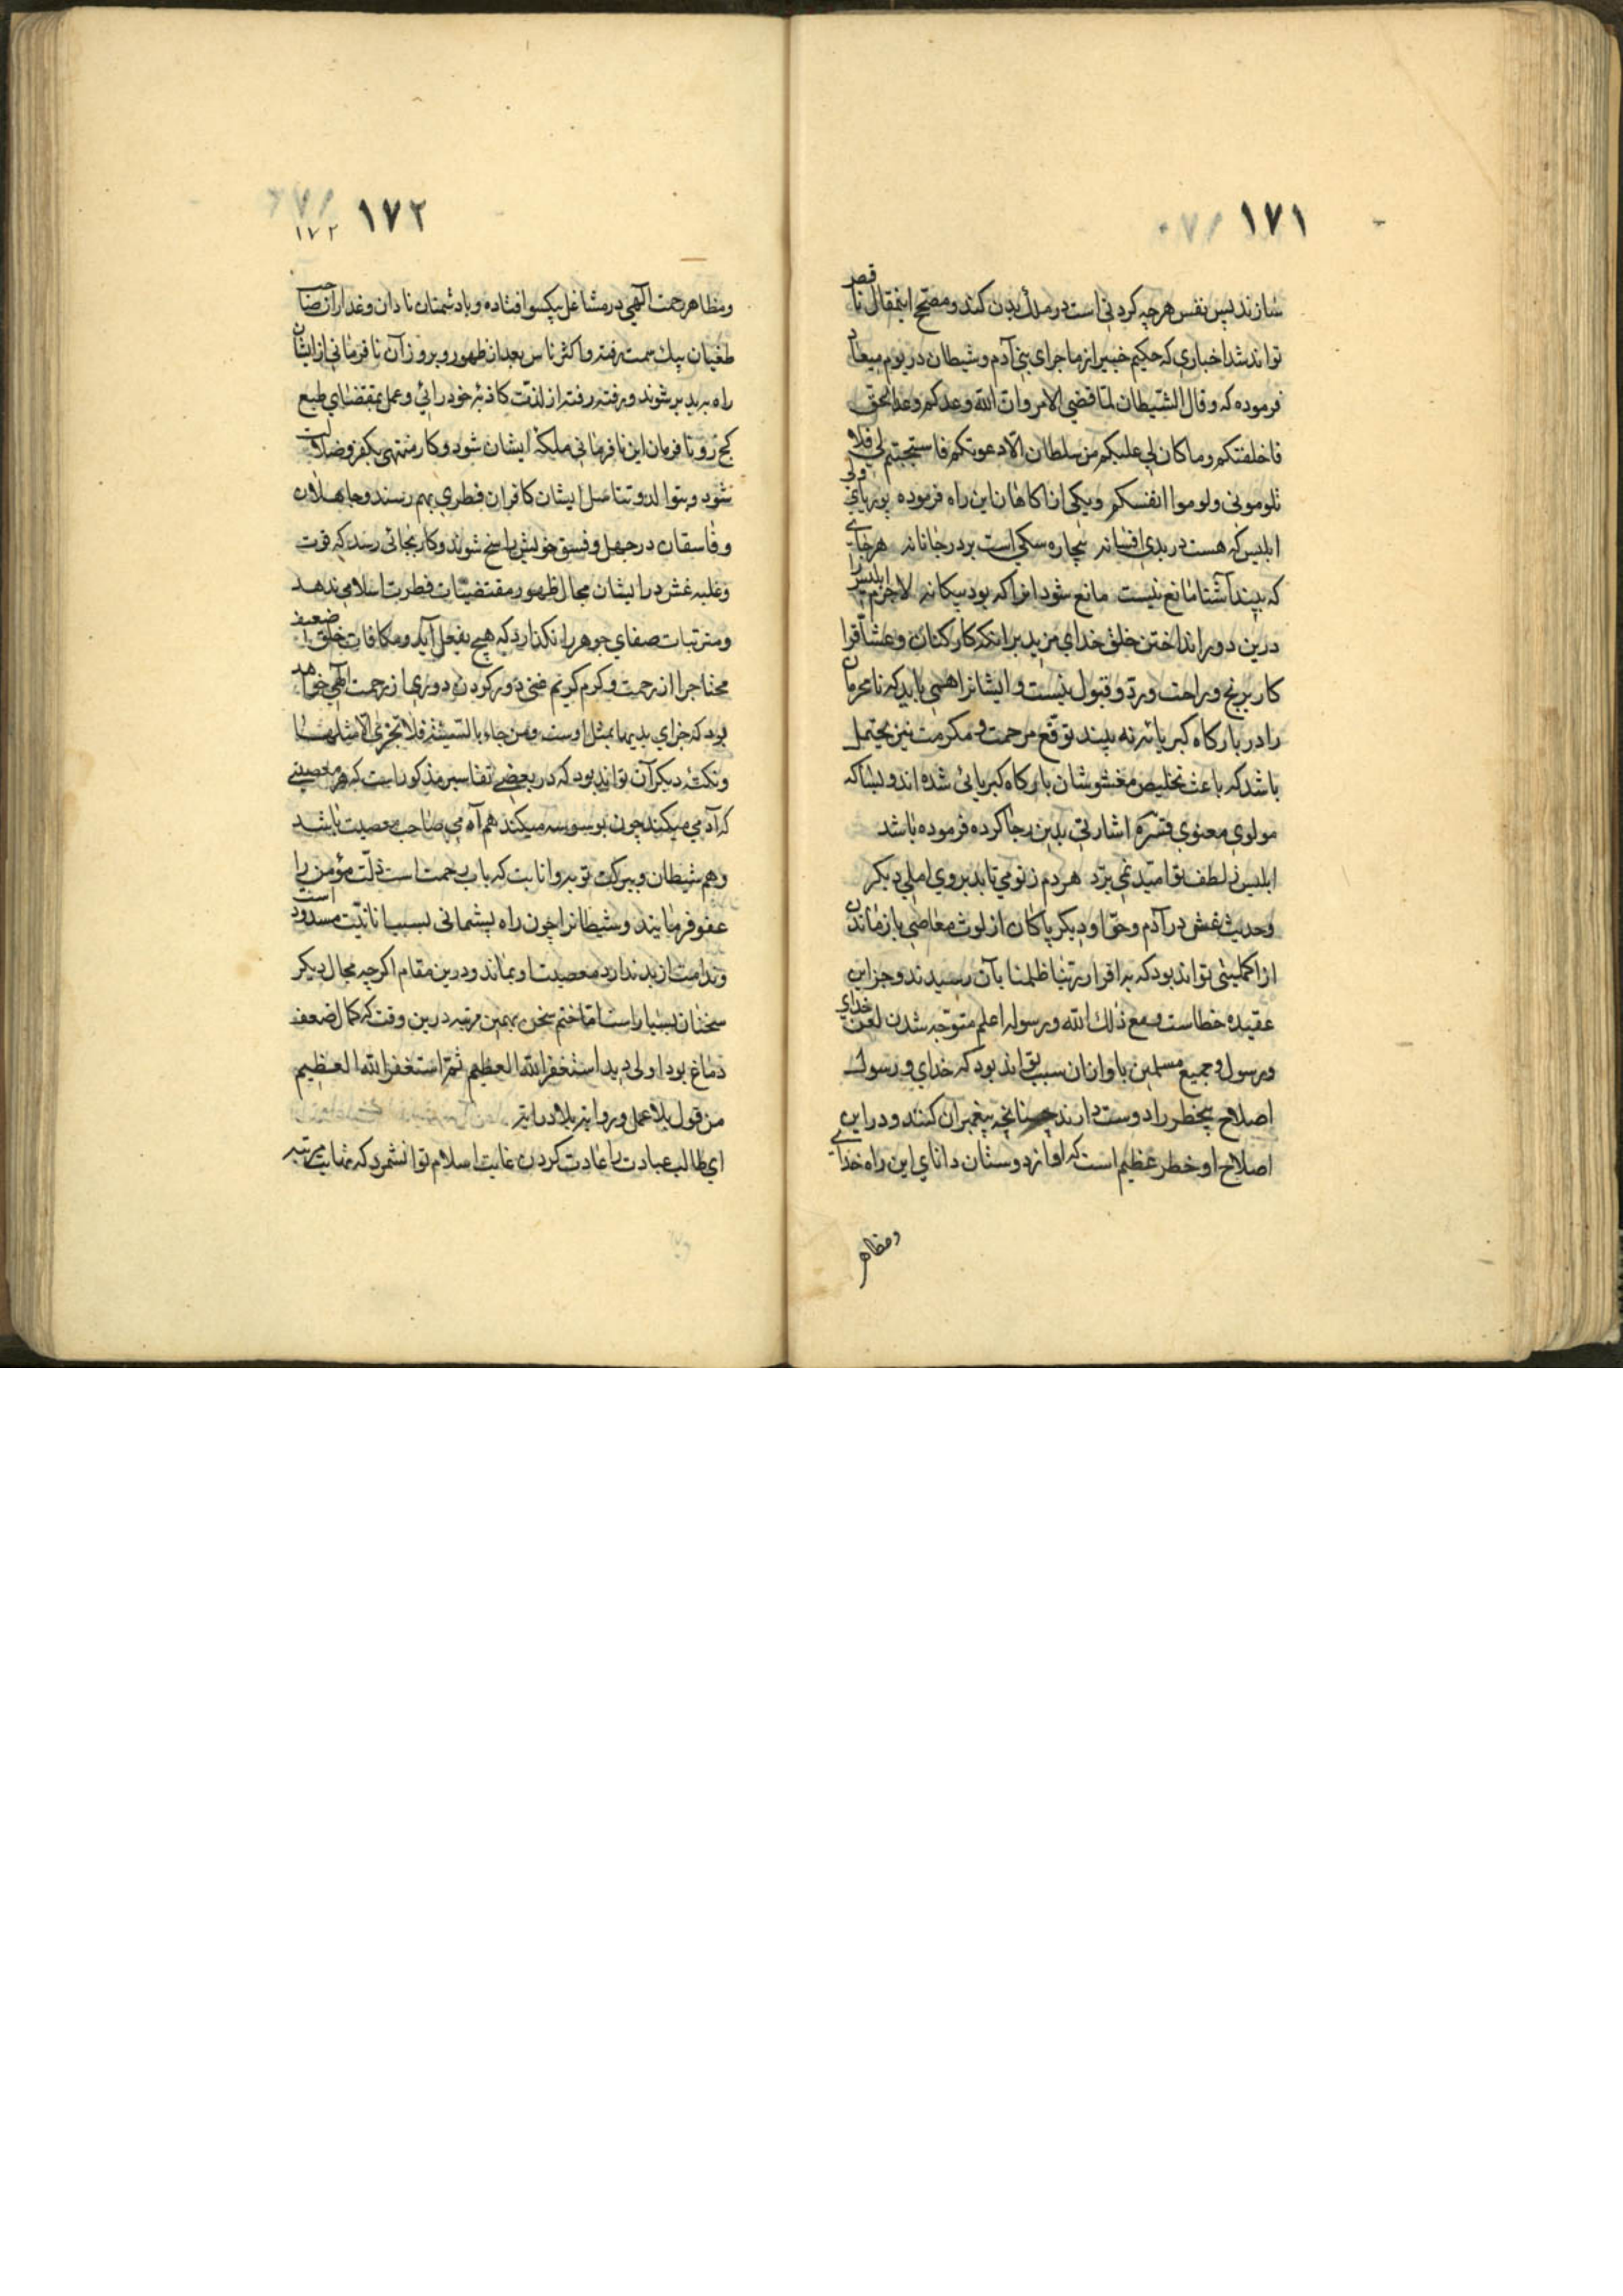 ١٧١
سازند پس نفس هرچه کردنی است در ملك بدن کند و مصحح اینمقال
تواند شد اخباری که حکیم خبیر از ماجرای بنی آدم و شیطان در یوم میعاد
فرموده که وقال الشیطان لما قضی الامر وان الله وعدکم وعد الحق
فاخلفتکم وما کان لی علیکم من سلطان الا دعوتکم فاستجبتم لی فلا
تلومونی ولوموا انفسکم ویکی از آکاهان این راه فرموده
ابلیس که هست در بدی افسانه بیچاره سکی است بر در جانانه هر جای
که بیند آشنا مانع نیست مانع شود انرا که بود بیکانه لاجرم ابلیس را
درین دور انداختن خلق خدای مزید بر آنکه کارکنان وعشاقرا
کار برنج وراحت ورد وقبول نیست وایشانرا همی باید که نامحرمان
را در بارکاه کبریا ره نه بیند توقع مرحمت ومکرمت نیز محتمل
باشد که باعث تخلیص مغشوشان بارکاه کبریائی شده اند
مولوی معنوی قدسره اشارتی بدین رجا کرده فرموده باشد
ابلیس ز لطف تو امید نمی برد هردم ز تو می تابد بروی املی دیکر
وحدیث غش در آدم وحوا ودیکر پاکان از لوث معاصی باز ماندن
از اکملیتی تواند بود که به اقرار ربنا ظلمنا بآن رسیدند وجز این
عقیده خطاست ومع ذلك الله ورسوله اعلم متوجه شدن لعن خدای
ورسول وجمیع مسلمین باو ازان سبب تواند بود که خدای ورسول
اصلاح بیخطر را دوست دارند چنانچه پیغمبران کنند ودر این
اصلاح او خطر عظیم است که او از دوستان دانای این راه خدای
ومظاهر
١٧٢
١٧٢
ومظاهر رحمت الهی در مشاغل یکسو افتاده وبا دشمنان نادان وغداران صاحب
طغیان بیك سمت رفته واکثر ناس بعد از ظهور وبروز آن نافرمانی از ایشان
راه بریده بر شوند ورفته رفته از لذت کاذبه خودرائی وعمل بمقتضای طبع
کج رو نافرمان این نافرمانی ملکه ایشان شود وکار منتهی بکفر وضلالت
شود وبتوالد وتناسل ایشان کافران فطری بهم رسند وجاهلان
وفاسقان در جهل وفسق خویش راسخ شوند وکار بجائی رسد که قوت
وغلبه غش در ایشان مجال ظهور مقتضیات فطرت اسلامی ندهد
ومترتبات صفای جوهر را نکذارد که هیچ بفعل آید ومکافات خلق ضعیف
محتاجرا از رحمت وکرم کریم غنی دور کردن دوری از رحمت الهی خواهد
بود که جزای بدیها بمثل اوست ومن جاء بالسیئة فلا یجزی الا مثلها
ونکته دیکر آن تواند بود که در بعضی تفاسیر مذکور است که هر معصیتی
که آدمی میکند چون بوسوسه میکند هم آدمی صاحب معصیت باشد
وهم شیطان وببرکت توبه وانابت که باب رحمت است ذلت مؤمن را
عفو فرمایند وشیطانرا چون راه پشمانی بسبب انانیت مسدود است
وندامت از بد ندارد معصیت او بماند ودرین مقام اکرچه مجال دیکر
سخنان بسیار است اما ختم سخن بهمین مرتبه درین وقت که کمال ضعف
دماغ بود اولی دید استغفر الله العظیم ثم استغفر الله العظیم
من قول بلا عمل وروایة بلا درایة
ای طالب عبادت را عادت کردن غایت اسلام توانشمرد که